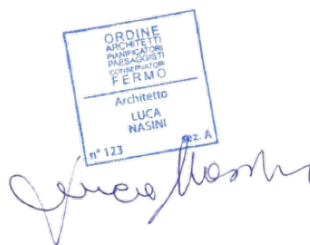 ORDINE
ARCHITETTI
PIANIFICATORI
PAESAGGISTI
CONSERVATORI
FERMO
Architetto
LUCA
NASINI
n° 123 sez. A
Luca Nasini